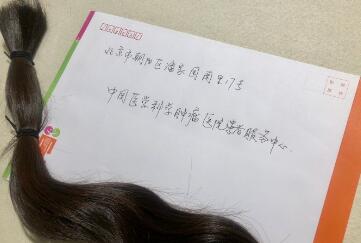 北京市朝阳区潘家园南里17号
中国医学科学肿瘤医院患者服务中心